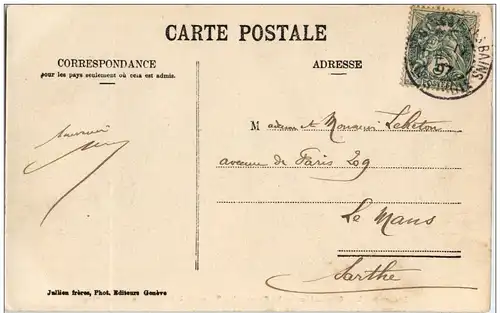 CARTE POSTALE
CORRESPONDANCE
pour les pays seulement où cela est admis.
ADRESSE
BAINS
Souvenir
M adame et Monsieur Leheton
avenue de Paris 209
Le Mans
Sarthe
Jullien frères, Phot. Editeurs Genève